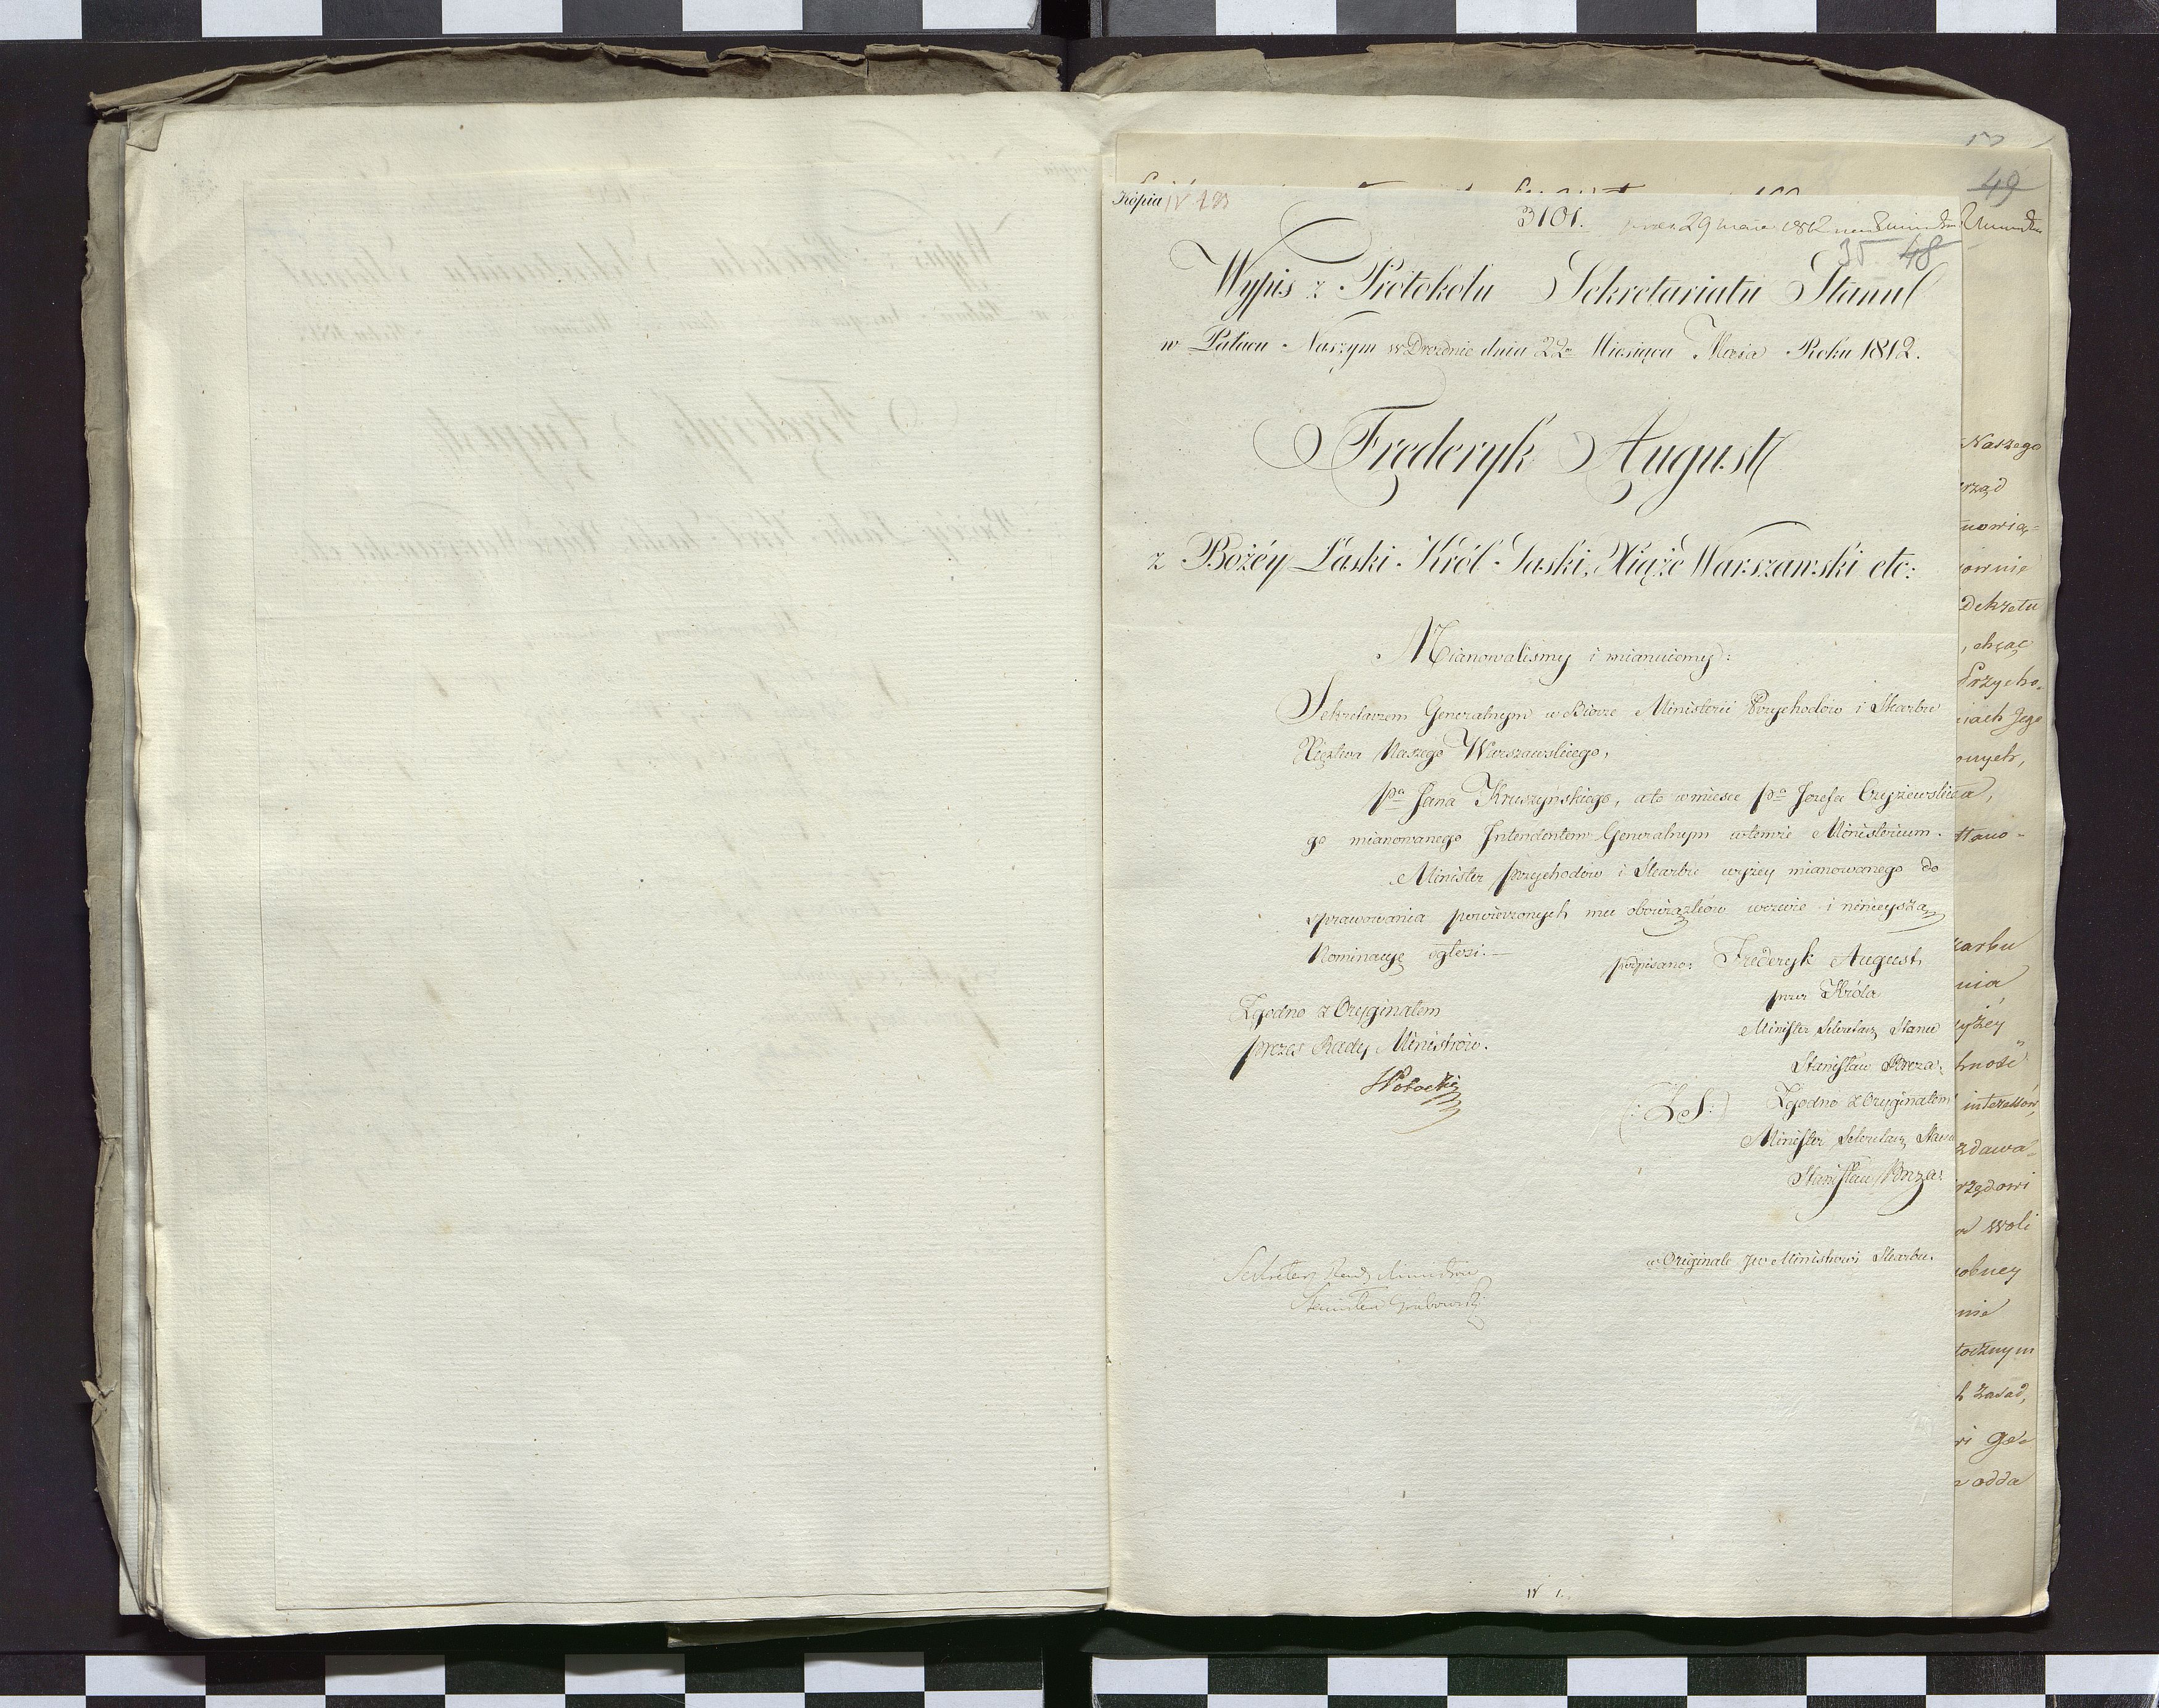 49
Kopia
3101. 29 maia 1812
35 48
Wypis z Protokółu Sekretariatu Stanu
w Pałacu Naszym w Dreźnie dnia 22go Miesiąca Maia Roku 1812.
Fryderyk August
z Bożéy Łaski Król Saski, Xiąże Warszawski etc:
Mianowalismy i mianuiemy:
Sekretarzem Generalnym w Biorze Ministerii Przychodów i Skarbu
Xięztwa Naszego Warszawskiego,
pa Jana Kruszyńskiego, a to w miesce pa Jozefa Czyżewskie
go mianowanego Intendentem Generalnym wtemże Ministerium.
Minister przychodów i Skarbu wyżey mianowanego do
sprawowania powierzonych mu obowiązków wezwie i ninieyszą
Nominacyę ogłosi.—
podpisano: Frederyk August,
przez Króla
Minister Sekretarz Stanu
Stanisław Breza:
(: L.S. :) Zgodno z Oryginałem
Minister Sekretarz Stanu
Stanisław Breza:
Zgodno z Oryginałem
prezes Rady Ministrów.
SPotocki
w Originale JW Ministrowi Skarbu.
Sekretarz Rady Ministrów
Stanisław Grabowski
Naszego
rząd
nowią=
ownie
Dekretu
, chcąc
Przycho=
iach Jego
onych,
za,
stano=
karbu
nia
yżéy
hność
interessów,
zdawa=
rzędowi
woli
obney
nie
tocznym
h zasad,
odda